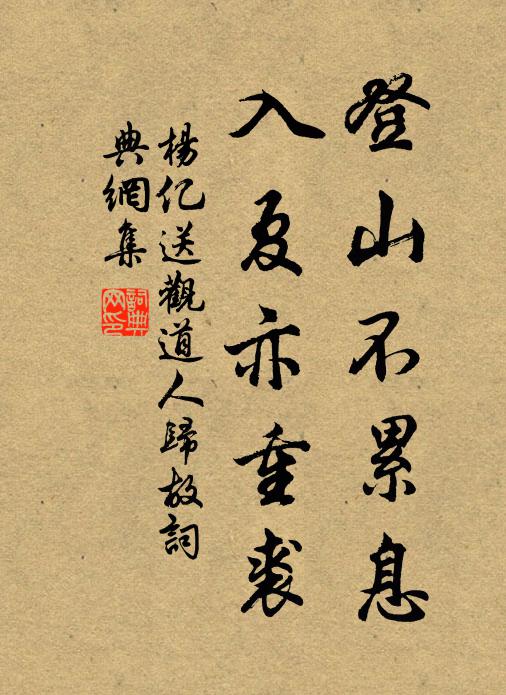 登山不累息
入夏亦重裘
楊亿送觀道人歸故詞
典網集
詞典網印